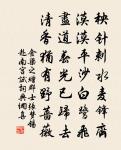 秧針刺水麥鋒齊
漠漠平沙白鷺飛
盡道春光已歸去
清香猶有野薔薇